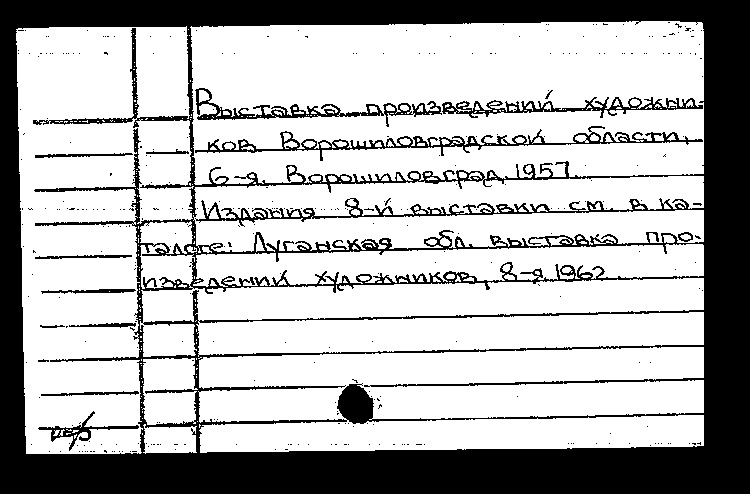 Выставка произведений художни-
ков Ворошиловградской области,
6-я. Ворошиловград, 1957.
Издания 8-й выставки см. в ка-
талоге: Луганская обл. выставка про-
изведений художников, 8-я 1962.